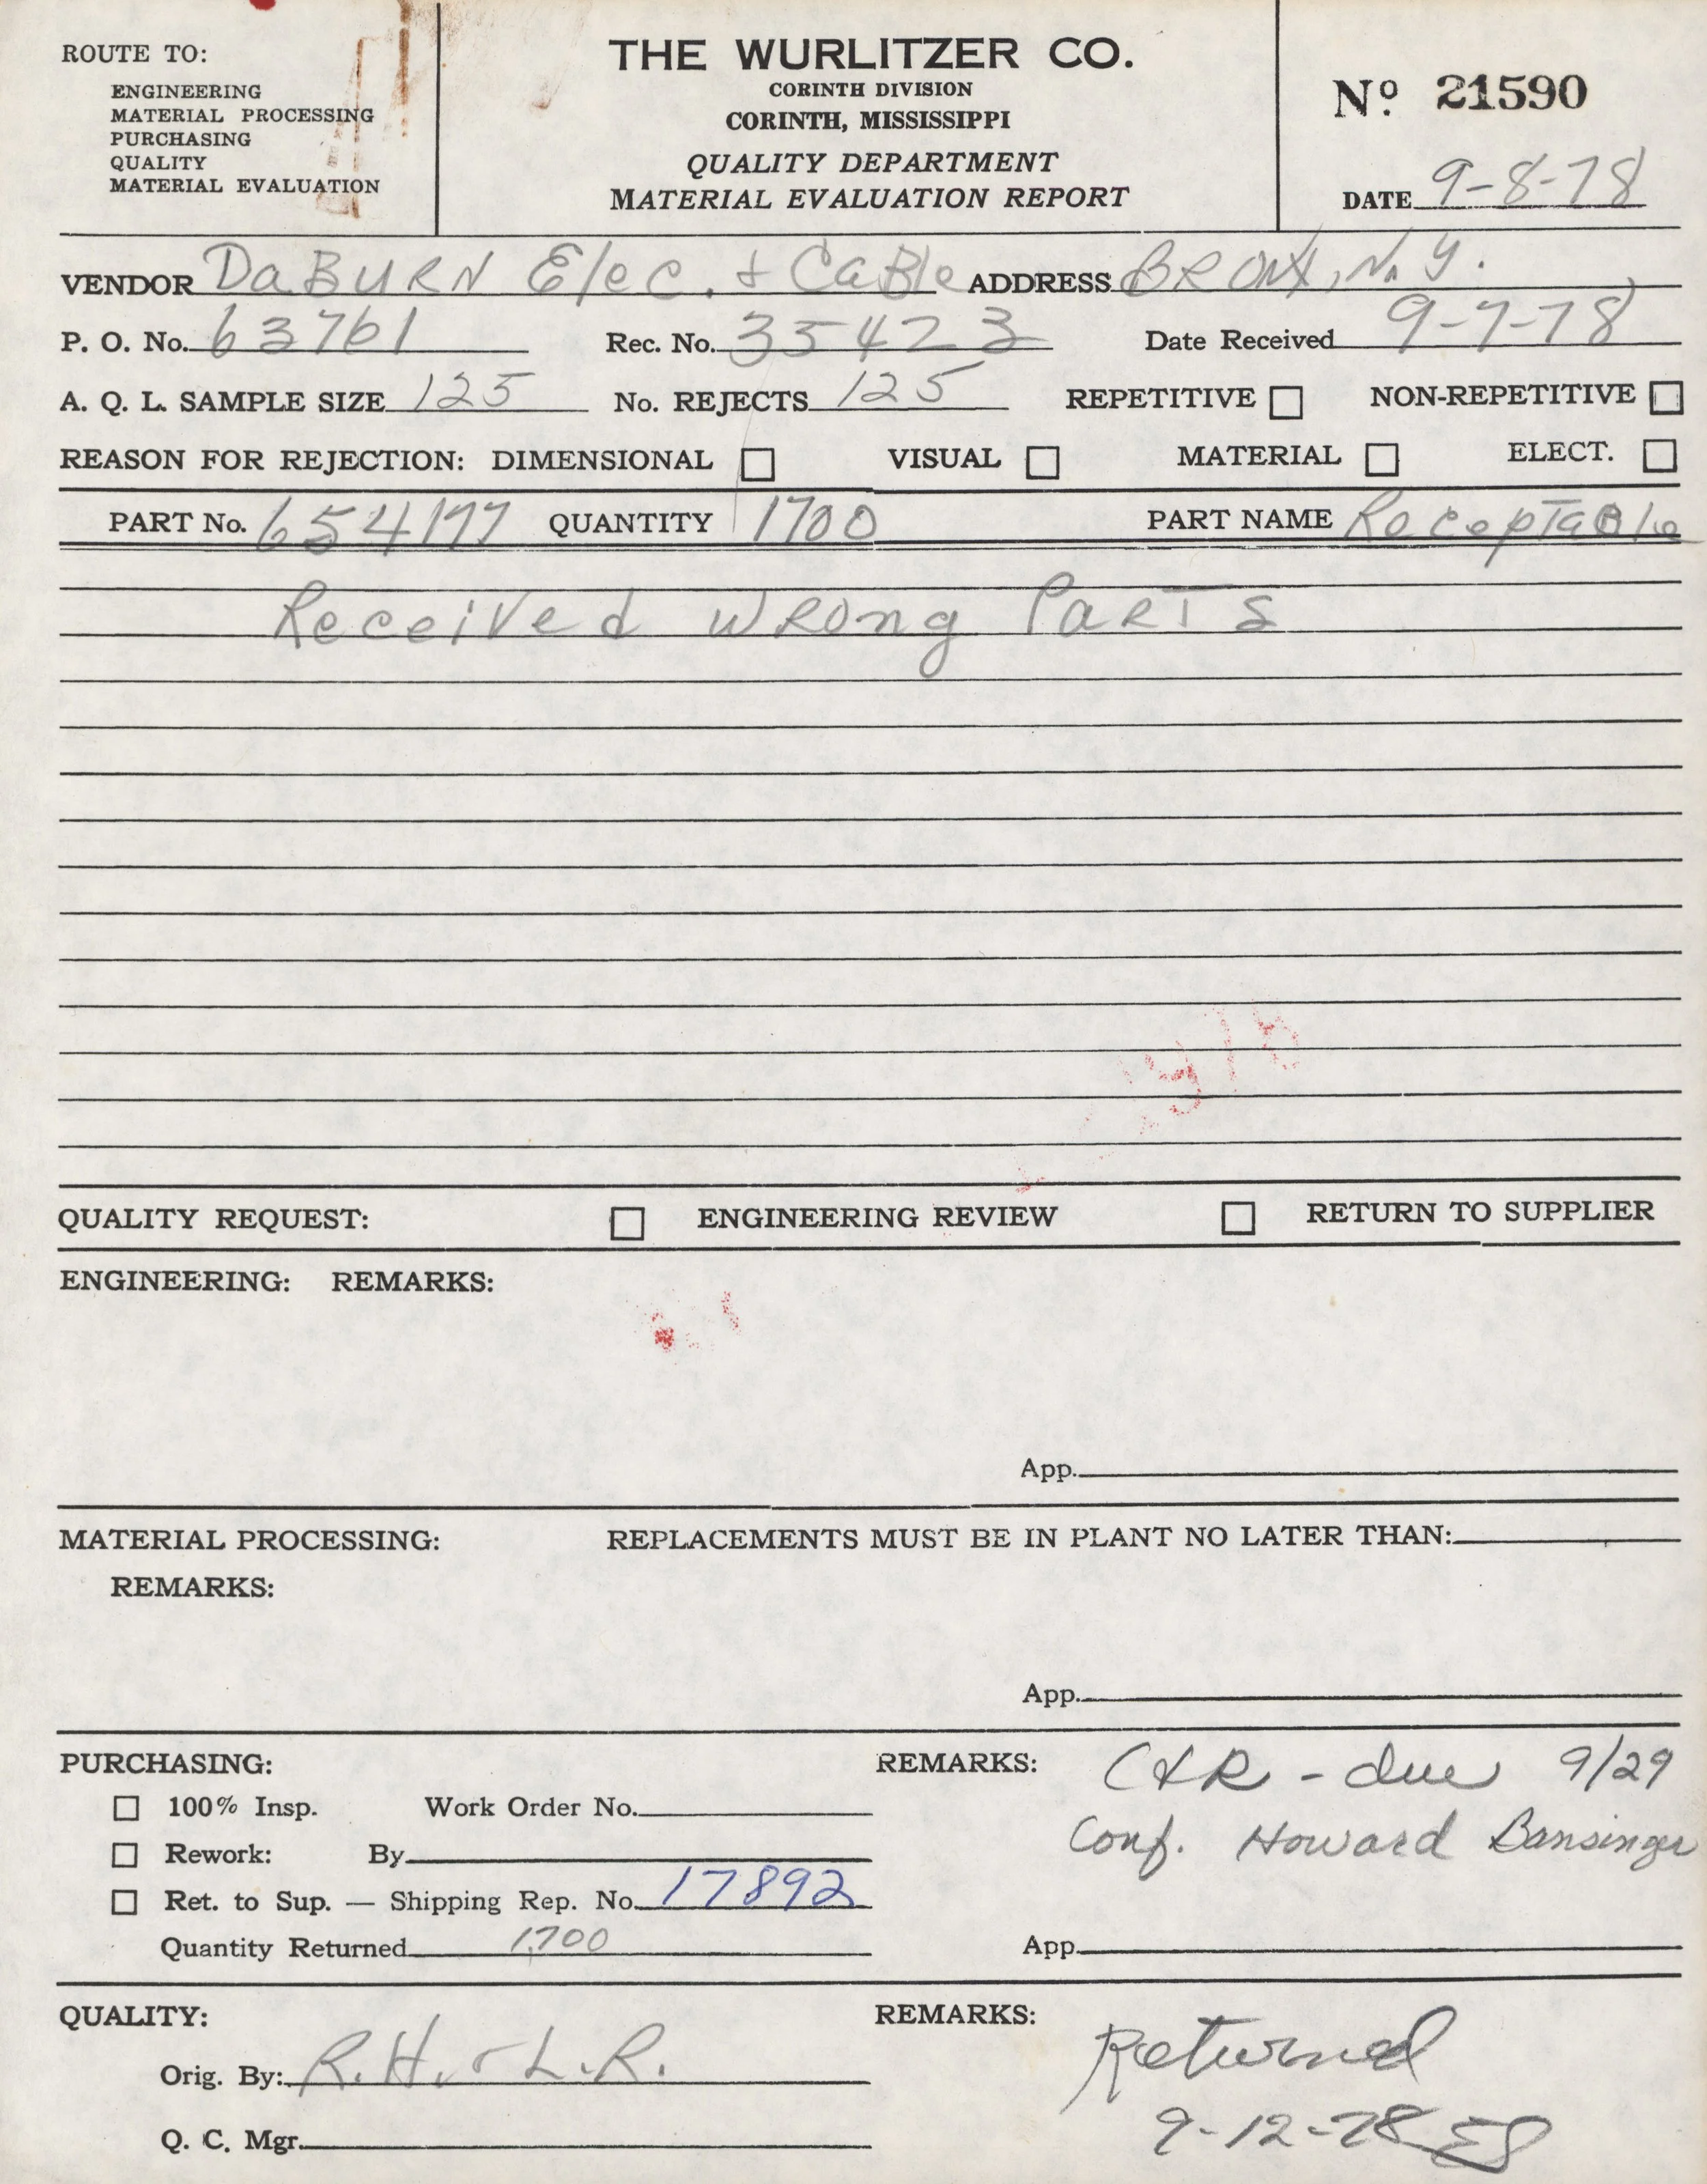 ROUTE TO:
ENGINEERING
MATERIAL PROCESSING
PURCHASING
QUALITY
MATERIAL EVALUATION
THE WURLITZER CO.
CORINTH DIVISION
CORINTH, MISSISSIPPI
QUALITY DEPARTMENT
MATERIAL EVALUATION REPORT
Nº 21590
DATE 9-8-78
VENDOR DaBURN Elec. & CaBle ADDRESS BRONX, N.Y.
P. O. No. 63761 Rec. No. 35423 Date Received 9-7-78
A. Q. L. SAMPLE SIZE 125 No. REJECTS 125 REPETITIVE NON-REPETITIVE
REASON FOR REJECTION: DIMENSIONAL VISUAL MATERIAL ELECT.
PART No. 654177 QUANTITY 1700 PART NAME RecepTaBle
Received WRong PaRTS
QUALITY REQUEST: ENGINEERING REVIEW RETURN TO SUPPLIER
ENGINEERING: REMARKS:
App.
MATERIAL PROCESSING: REPLACEMENTS MUST BE IN PLANT NO LATER THAN:
REMARKS:
App.
PURCHASING: REMARKS: C&R - due 9/29
100% Insp. Work Order No.
Conf. Howard Bansinger
Rework: By
Ret. to Sup. — Shipping Rep. No. 17892
Quantity Returned 1,700 App.
QUALITY: REMARKS: Returned
Orig. By: R.H. & L.R.
9-12-78 ES
Q. C. Mgr.